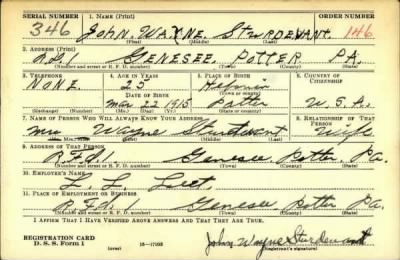 SERIAL NUMBER 1. NAME (Print) ORDER NUMBER
346 JOHN. WAYNE. STURDEVANT. 146
(First) (Middle) (Last)
2. ADDRESS (Print)
R.D.1 GENESEE. POTTER PA.
(Number and street or R. F. D. number) (Town) (County) (State)
3. TELEPHONE 4. AGE IN YEARS 5. PLACE OF BIRTH 6. COUNTRY OF CITIZENSHIP
NONE. 25
DATE OF BIRTH
Mar 22 1915 Potter U.S.A.
(Exchange) (Number) (Mo.) (Day) (Yr.) (State or country)
7. NAME OF PERSON WHO WILL ALWAYS KNOW YOUR ADDRESS 8. RELATIONSHIP OF THAT PERSON
Mrs Wayne Sturdevant Wife
(Mr., Mrs., Miss) (First) (Middle) (Last)
9. ADDRESS OF THAT PERSON
R.F.d.1. Genesee Potter, Pa.
(Number and street or R. F. D. number) (Town) (County) (State)
10. EMPLOYER'S NAME
L. L.
11. PLACE OF EMPLOYMENT OR BUSINESS
R.F.d. 1 Genesee Potter Pa.
(Number and street or R. F. D. number) (Town) (County) (State)
I AFFIRM THAT I HAVE VERIFIED ABOVE ANSWERS AND THAT THEY ARE TRUE.
REGISTRATION CARD
D. S. S. Form 1 (over) 16—17105 John Wayne Sturdevant
(Registrant's signature)